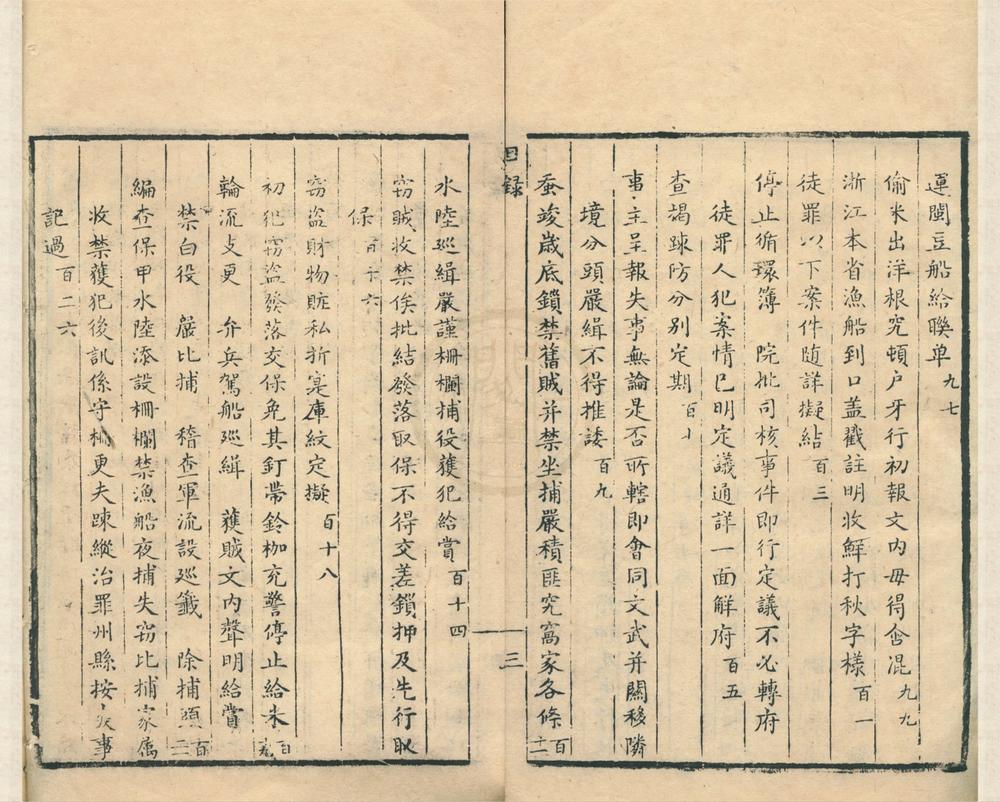 運閩豆船給聯单 九七
偷米出洋根究頓户牙行初報文内毋得含混 九九
浙江本省漁船到口盖戳註明收鮮打秋字樣 百一
徒罪以下案件随詳擬結 百三
停止循環簿 院批司核事件即行定議不必轉府
徒罪人犯案情已明定議通詳一面解府 百五
查褐踈防分别定期 百
事主呈報失事無論是否所轄即會同文武并關移隣
境分頭嚴緝不得推諉 百九
蚕竣歲底鎖禁舊賊并禁坐捕嚴積匪究窩家各條 百十二
目録
三
水陸巡緝嚴謹柵欄捕役獲犯給賞 百十四
窃賊收禁俟批結發落取保不得交差鎖押及先行取
保 百十六
窃盗財物賍私折寔庫紋定擬 百十八
初犯窃盗發落交保免其釘帶鈴枷充警停止給米 百
輪流支更 弁兵駕船巡緝 獲賊文内聲明給賞
禁白役 嚴比捕 稽查軍流設巡籤 除捕 百二
編查保甲水陸添設柵欄禁漁船夜捕失窃比捕家属
收禁獲犯後訊係守柵更夫踈縱治罪州縣按失事
記過 百二六